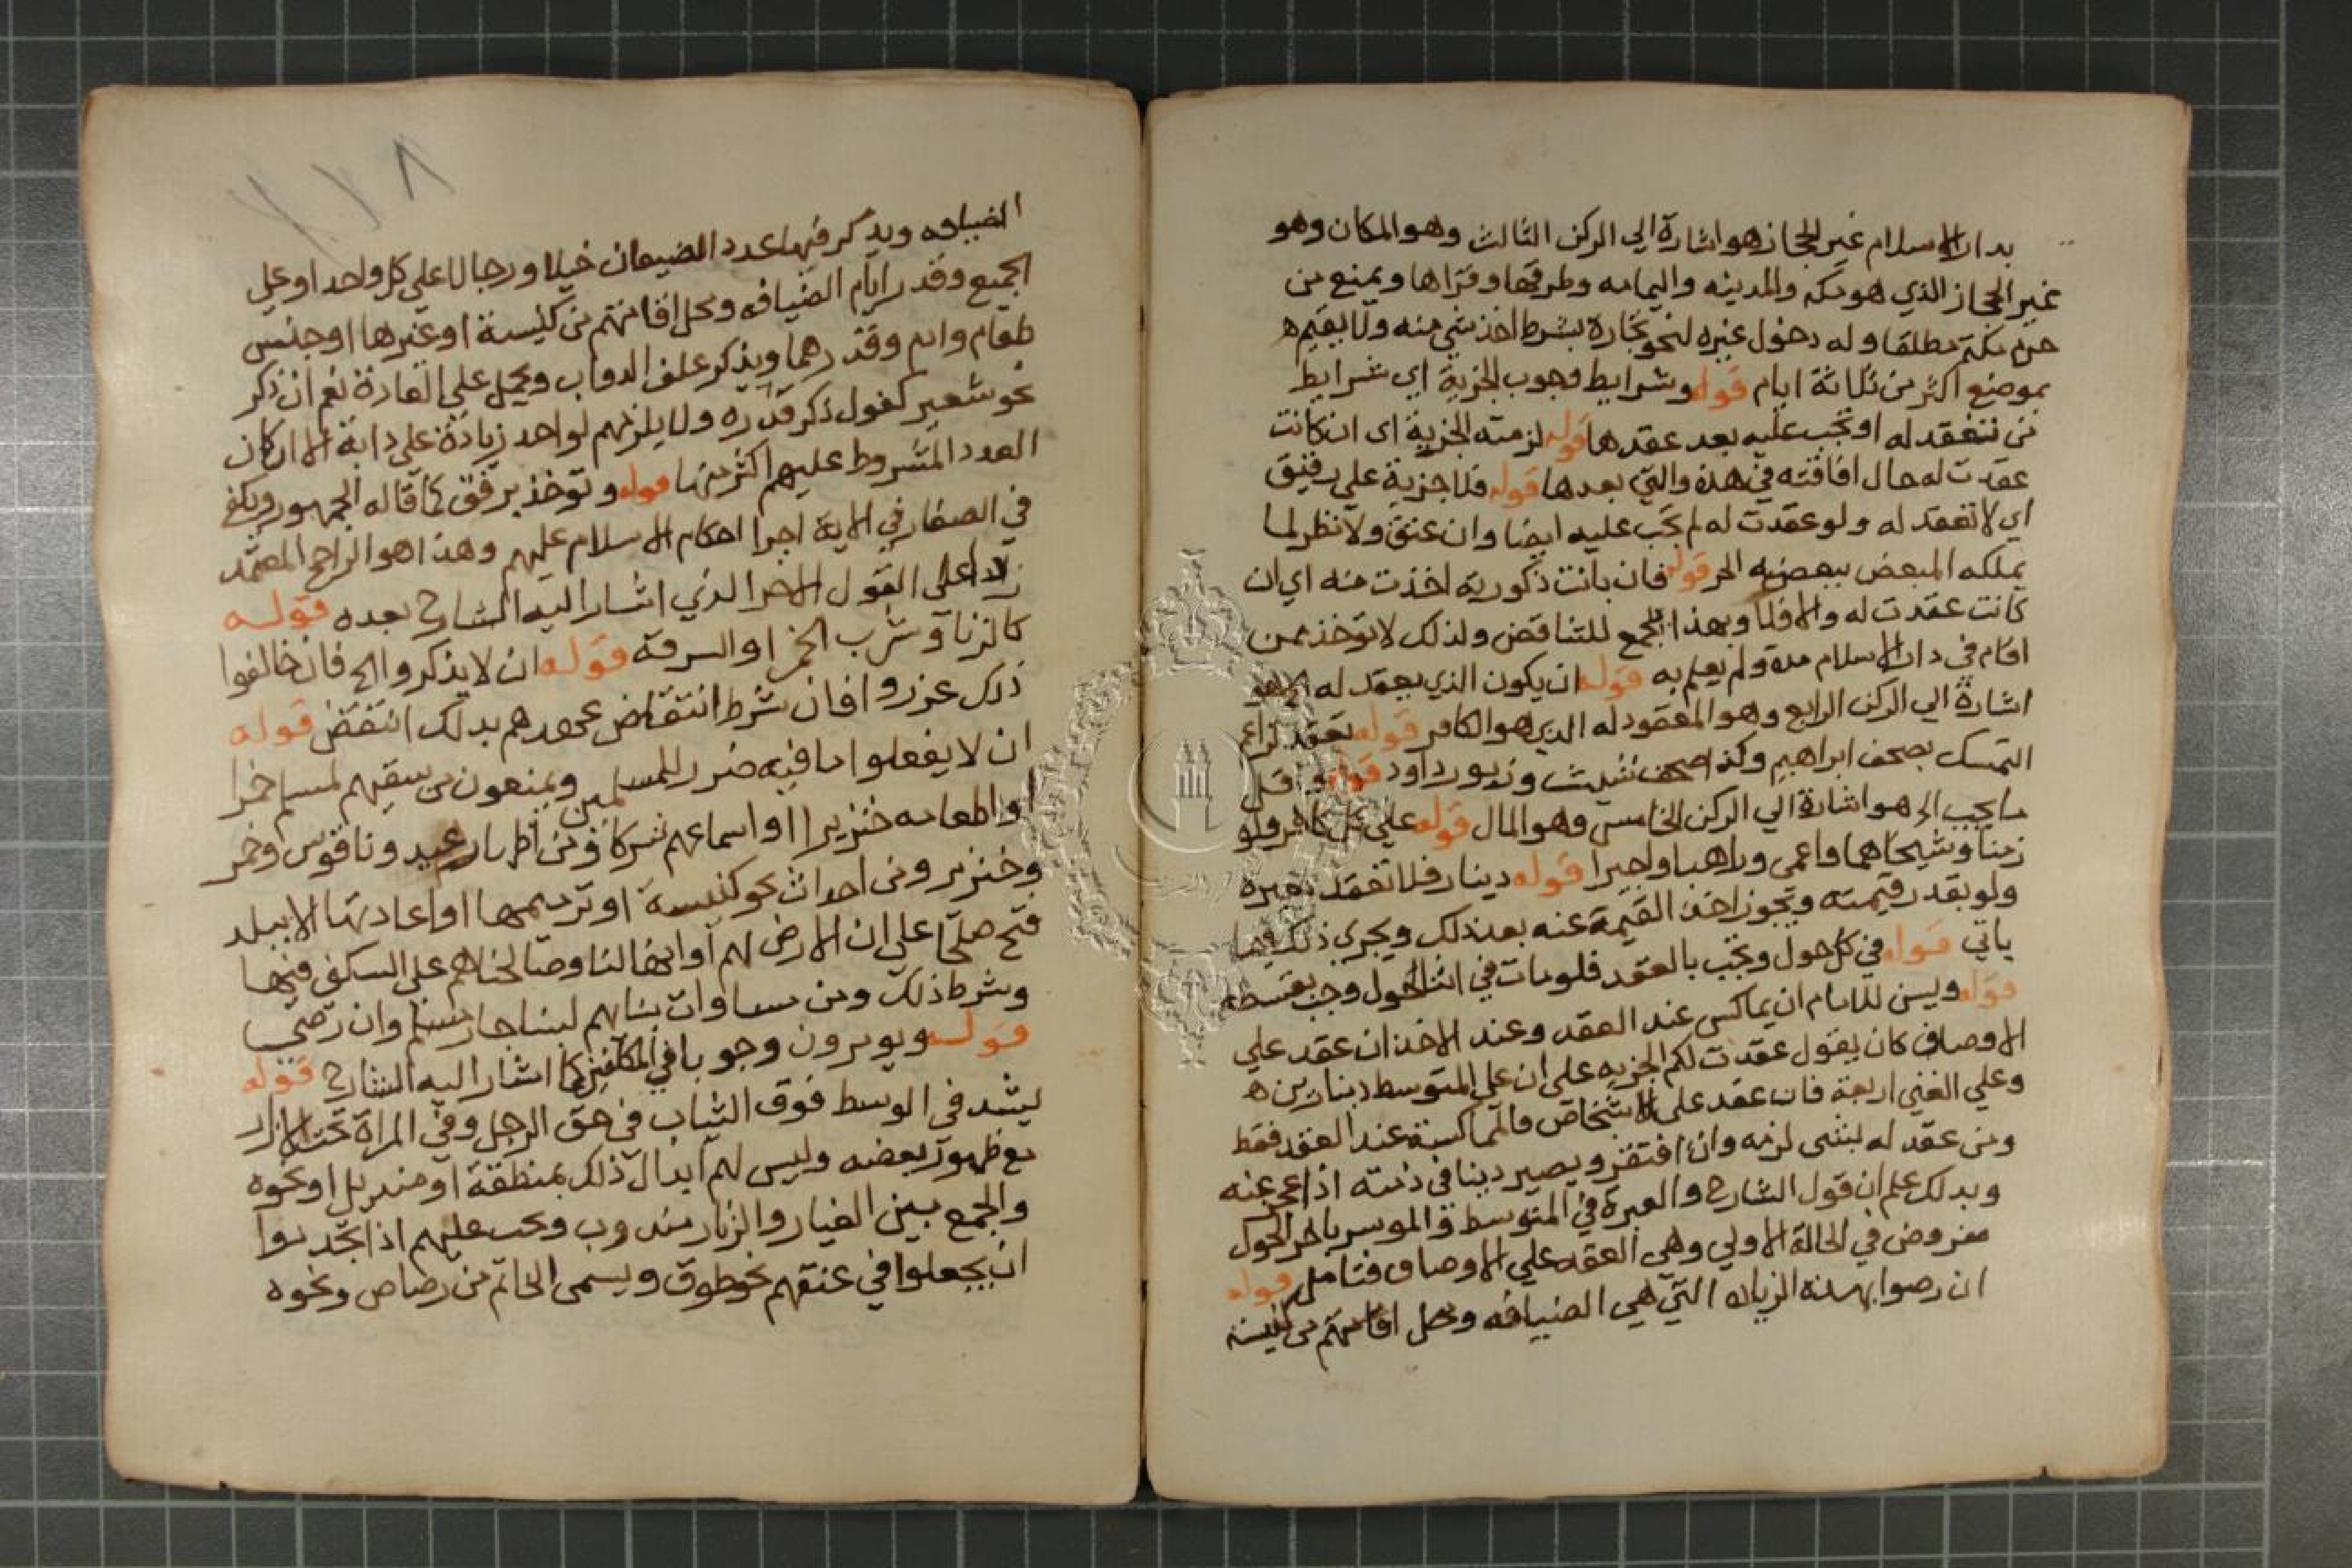 بدار الاسلام غير الحجاز هو اشارة الي الركن الثالث وهو المكان وهو
غير الحجاز الذي هو مكه والمدينه واليمامه وطرقها وقراها ويمنع من
حرم مكة مطلقا وله دخول غيره لنحو تجارة بشرط اخذ شي منه ولا يقيم
بموضع اكثر من ثلاثة ايام قوله وشرايط وجوب الجزية اي شرايط
من تنعقد له او تجب عليه بعد عقدها قوله لزمته الجزية اي ان كانت
عقدت له حال افاقته في هذه والتي بعدها قوله فلا جزية علي رقيق
اي لا تعقد له ولو عقدت له لم تجب عليه ايضا وان عتق ولا نظر لما
يملكه المبعض ببعضه الحر قوله فان بانت ذكورية اخذت منه اي ان
كانت عقدت له والا فلا وبهذا يجمع للتناقض ولذلك لا توخذ ممن
اقام في دار الاسلام مدة ولم يعلم به قوله ان يكون الذي يعقد له الخ هو
اشارة الي الركن الرابع وهو المعقود له الذي هو الكافر قوله يعقد لزاعم
التمسك بصحف ابراهيم وكذا صحف شيث وزبور داود قوله واقل
ما يجب الخ هو اشارة الي الركن الخامس وهو المال قوله علي كل كافر ولو
زمنا وشيخا هما واعمى وراهبا واجيرا قوله دينار فلا تعقد بغيره
ولو بقدر قيمته ويجوز اخذ القيمة عنه بعد ذلك ويجري ذلك فيما
ياتي قوله في كل حول وتجب بالعقد فلو مات في اثنا الحول وجب بقسطه
قوله ويسن للامام ان يماكس عند العقد وعند الاخذ ان عقد علي
الاوصاف كان يقول عقدت لكم الجزيه على ان علي المتوسط دينارين
وعلي الغني اربعة فان عقد على الاشخاص فالمماكسة عند العقد فقط
ومن عقد له بشي لزمه وان افتقر ويصير دينا في ذمته اذا عجز عنه
وبدلك علم ان قول الشارح والعبرة في المتوسط والموسر باخر الحول
مفروض في الحالة الاولي وهي العقد علي الاوصاف فتامل قوله
ان رضوا بهذه الزيادة التي هي الضيافه ومحل اقامتهم من كنيسة
الضيافه ويذكر فيها عدد الضيفان خيلا ورجالا علي كل واحد او علي
الجميع وقدر ايام الضيافه ومحل اقامتهم من كنيسة او غيرها او جنس
طعام وادم وقدرهما ويذكر علف الدواب ويحمل علي العادة نعم ان ذكر
نحو شعير كفول ذكر قدره ولا يلزمهم لواحد زيادة على دابة الا ان كان
العدد المشروط عليهم اكثر منها قوله وتوخذ برفق كما قاله الجمهور ويكفي
في الصغار في الاية اجرا احكام الاسلام عليهم وهذا هو الراجح المعتمد
ردا على القول الاخر الذي اشار اليه الشارح بعده قوله
كالزنا وشرب الخمر او السرقة قوله ان لا يذكروا الخ فان خالفوا
ذلك عزروا فان شرط انتقاض عهدهم بدلك انتقض قوله
ان لا يفعلوا ما فيه ضرر للمسلمين ويمنعون من سقيهم لمسلم خمرا
او اطعامه خنزيرا او اسماعهم شركا ومن اظهار عيد وناقوس وخمر
وخنزير ومن احداث نحو كنيسة او ترميمها او اعادتها الا ببلد
فتح صلحا على ان الارض لهم او انها لنا وصالحناهم على السكنى فيها
وشرط ذلك ومن مساوات بنايهم لبنا جار مسلم وان رضي
قوله ويومرون وجوبا في المكلفين كما اشار اليه الشارح قوله
يشد في الوسط فوق الثياب في حق الرجل وفي المراة تحت الازار
مع ظهور بعضه وليس لهم ابدال ذلك بمنطقة او منديل او نحوه
والجمع بين الغيار والزنار مندوب ويجب عليهم اذا تجردوا
ان يجعلوا في عنقهم نحو طوق ويسمى الخاتم من رصاص ونحوه